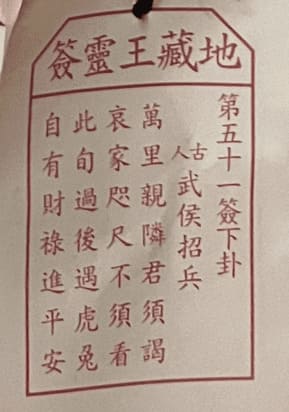 地藏王靈簽
第五十一簽下卦
古人武侯招兵
萬里親隣君須謁
哀家咫尺不須看
此旬過後遇虎兔
自有財祿進平安